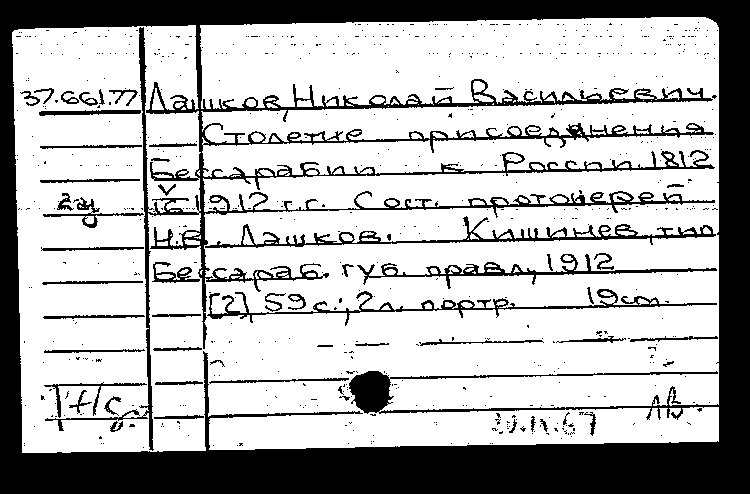 37.661.77 Лашков, Николай Васильевич.
Столетие присоединения
Бессарабии к России 1812
1912 г.г. Сост. протоиерей
Н.В. Лашков. Кишинев, тип.
Бессараб. губ. правл., 1912
[2], 59 с., 2 л. портр. 19 cm.
20.IX.67 ЛВ.